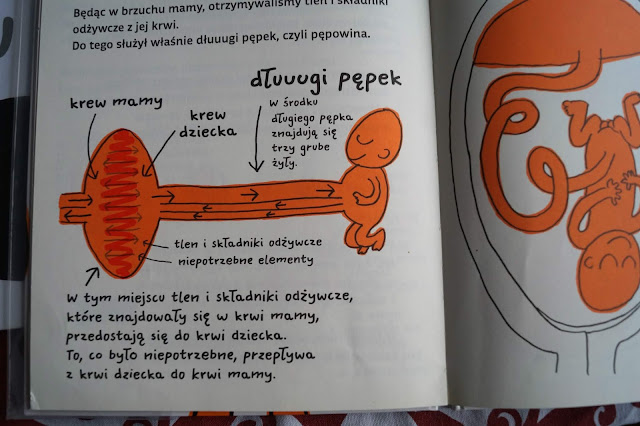 Będąc w brzuchu mamy, otrzymywaliśmy tlen i składniki
odżywcze z jej krwi.
Do tego służył właśnie dłuuugi pępek, czyli pępowina.
dłuuugi pępek
krew mamy
krew
dziecka
W środku
długiego pępka
znajdują się
trzy grube
żyły.
tlen i składniki odżywcze
niepotrzebne elementy
W tym miejscu tlen i składniki odżywcze,
które znajdowały się w krwi mamy,
przedostają się do krwi dziecka.
To, co było niepotrzebne, przepływa
z krwi dziecka do krwi mamy.